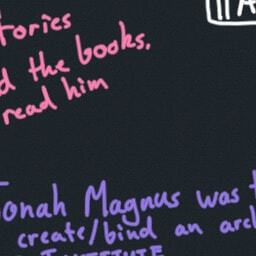 tories
the books.
read him
Jonah Magnus was
create/bind an